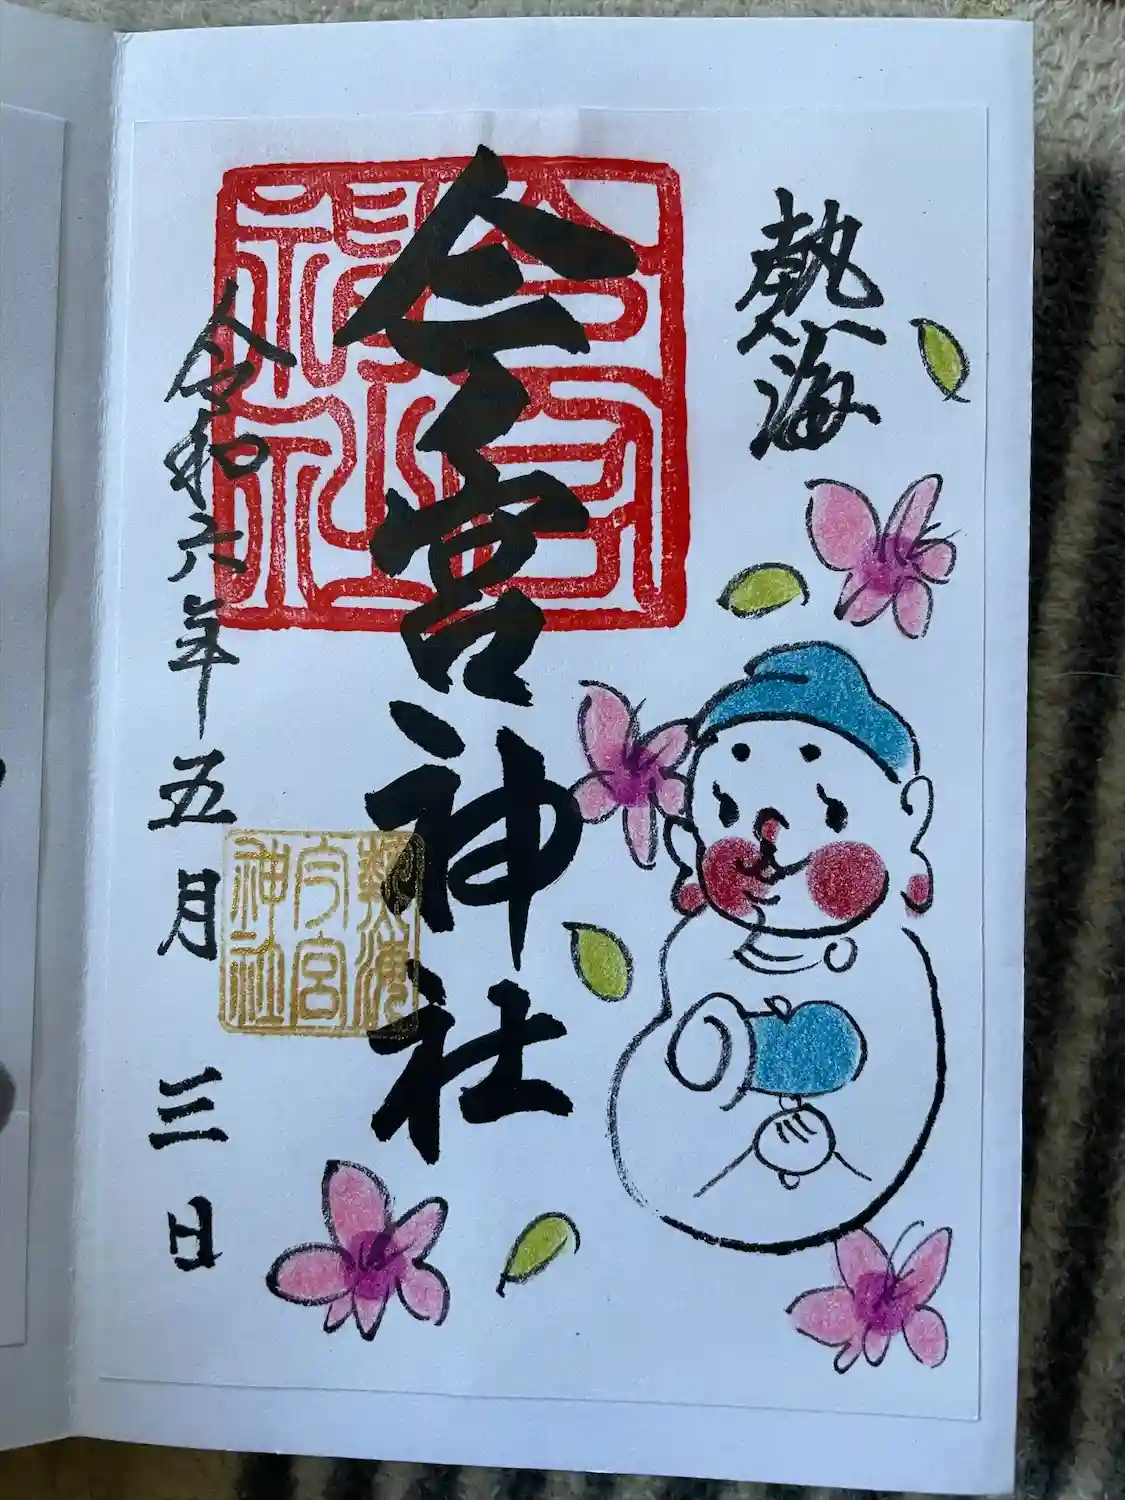 熱海
今宮神社
令和六年五月三日
今宮神社
熱海
今宮
神社